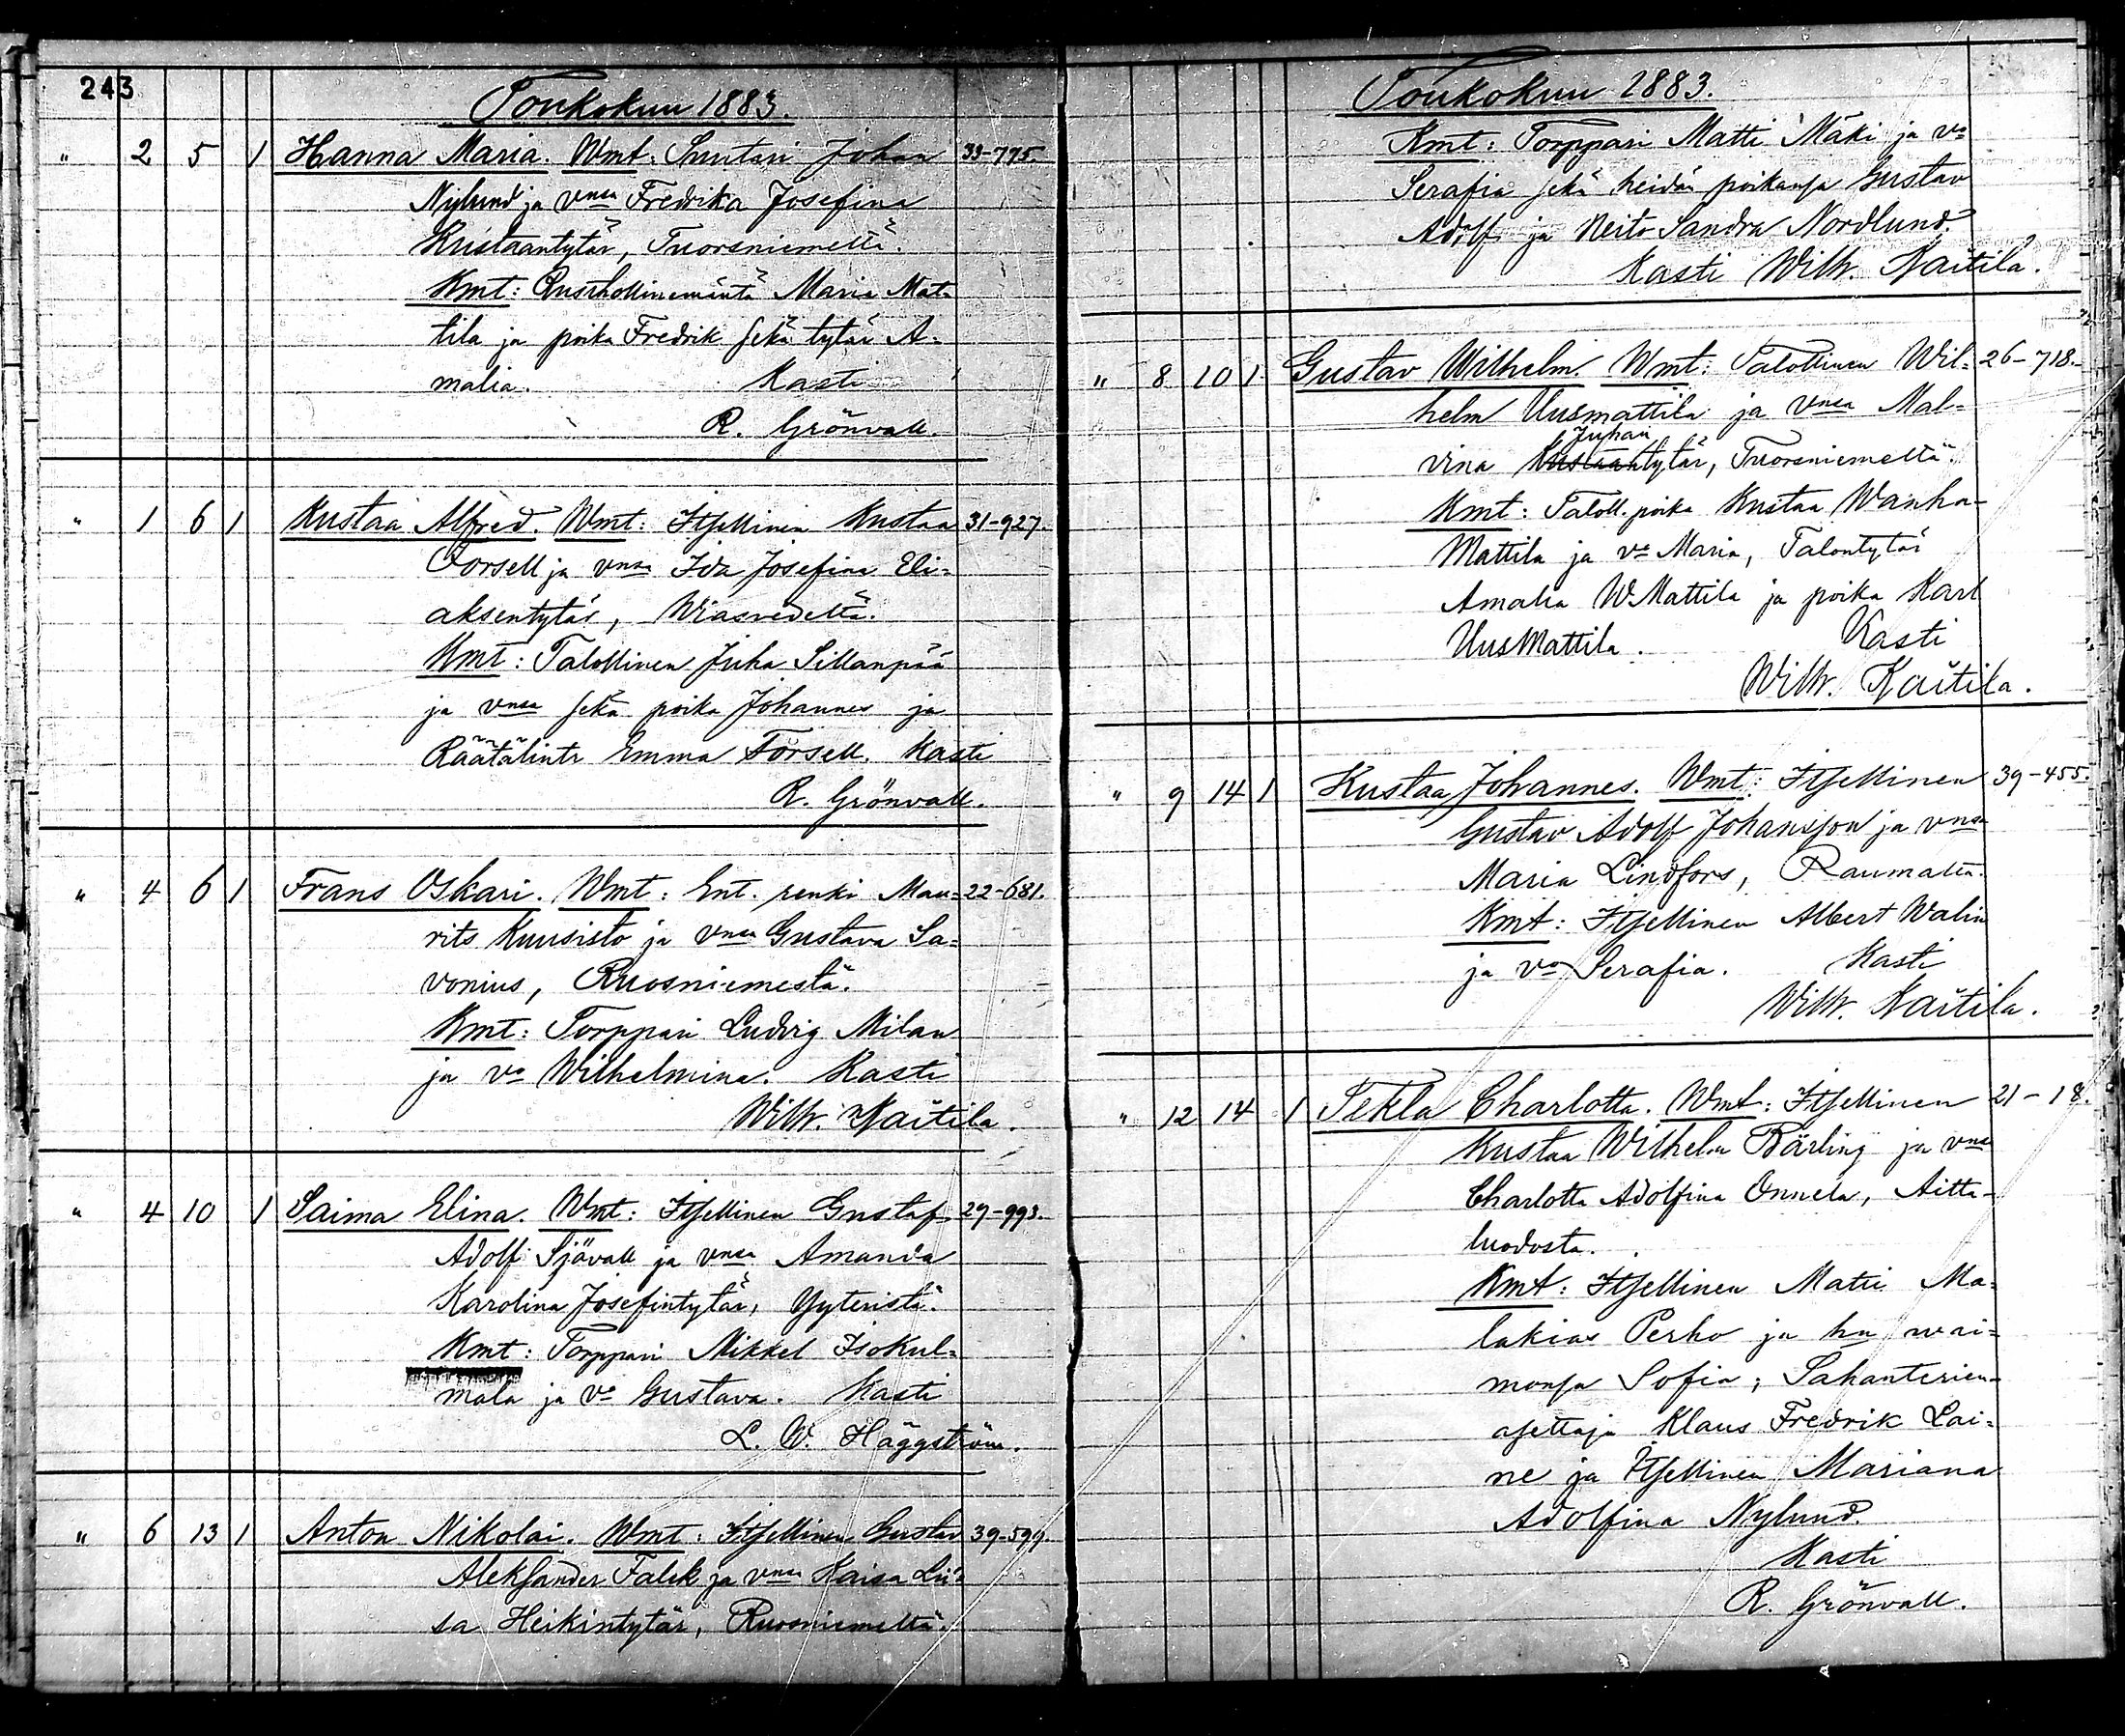 243
Toukokuu 1883.
" 2 5 1 Hanna Maria. Wmt: Suutari Johan 33-775.
Nylund ja vnsa Fredrika Josefina
Kustaantytär, Tuorsniemeltä.
Kmt: Pusthollinemäntä Maria Mat-
tila ja poika Fredrik sekä tytär A-
malia. Kasti
R. Grönvall.
" 1 6 1 Kustaa Alfred. Wmt: Itsellinen Kustaa 31-927.
Forsell ja vnsa Ida Josefina Eli-
aksentytär, Wiasvedeltä.
Kmt: Talollinen Juha Sillanpää
ja vnsa sekä poika Johannes ja
Räätälintr Emma Forsell. Kasti
R. Grönvall.
" 4 6 1 Frans Oskari. Wmt: Ent. renki Mau- 22-681.
rits Kuusisto ja vnsa Gustava Sa-
vonius, Ruosniemestä.
Kmt: Torppari Ludvig Milan
ja va Wilhelmina. Kasti
Wilh. Kaitila.
" 4 10 1 Saima Elina. Wmt: Itsellinen Gustaf 29-993.
Adolf Sjövall ja vnsa Amanda
Karolina Josefintytär, Yyteristä.
Kmt: Torppari Mikkel Isokul-
mala ja va Gustava. Kasti
L. W. Häggström.
" 6 13 1 Anton Nikolai. Wmt: Itsellinen Gustav 39-599.
Aleksander Falck ja vnsa Kaisa Lii-
sa Heikintytär, Ruosniemeltä.
Toukokuu 1883.
Kmt: Torppari Matti Mäki ja va
Serafia sekä heidän poikansa Gustav
Adolf ja Neito Sandra Nordlund.
Kasti Wilh. Kaitila.
" 8 10 1 Gustav Wilhelm. Wmt: Talollinen Wil- 26-718.
helm Uusmattila ja vnsa Mal-
Juhan
vina Kustaantytär, Tuorsniemeltä.
Kmt: Taloll. poika Kustaa Wanha-
Mattila ja va Maria, Talontytär
Amalia W.Mattila ja poika Karl
UusMattila. Kasti
Wilh. Kaitila.
" 9 14 1 Kustaa Johannes. Wmt: Itsellinen 39-455.
Gustav Adolf Johansson ja vnsa
Maria Lindfors, Raumalta.
Kmt: Itsellinen Albert Walin
ja va Serafia. Kasti
Wilh. Kaitila.
" 12 14 1 Tekla Charlotta. Wmt: Itsellinen 21-18.
Kustaa Wilhelm Bärling ja vnsa
Charlotta Adolfina Onnela, Aitta-
luodosta.
Kmt: Itsellinen Matti Ma-
lakias Perho ja hn wai-
monsa Sofia; Sahanterien-
asettaja Klaus Fredrik Lai-
ne ja Itsellinen Mariana
Adolfina Nylund.
Kasti
R. Grönvall.